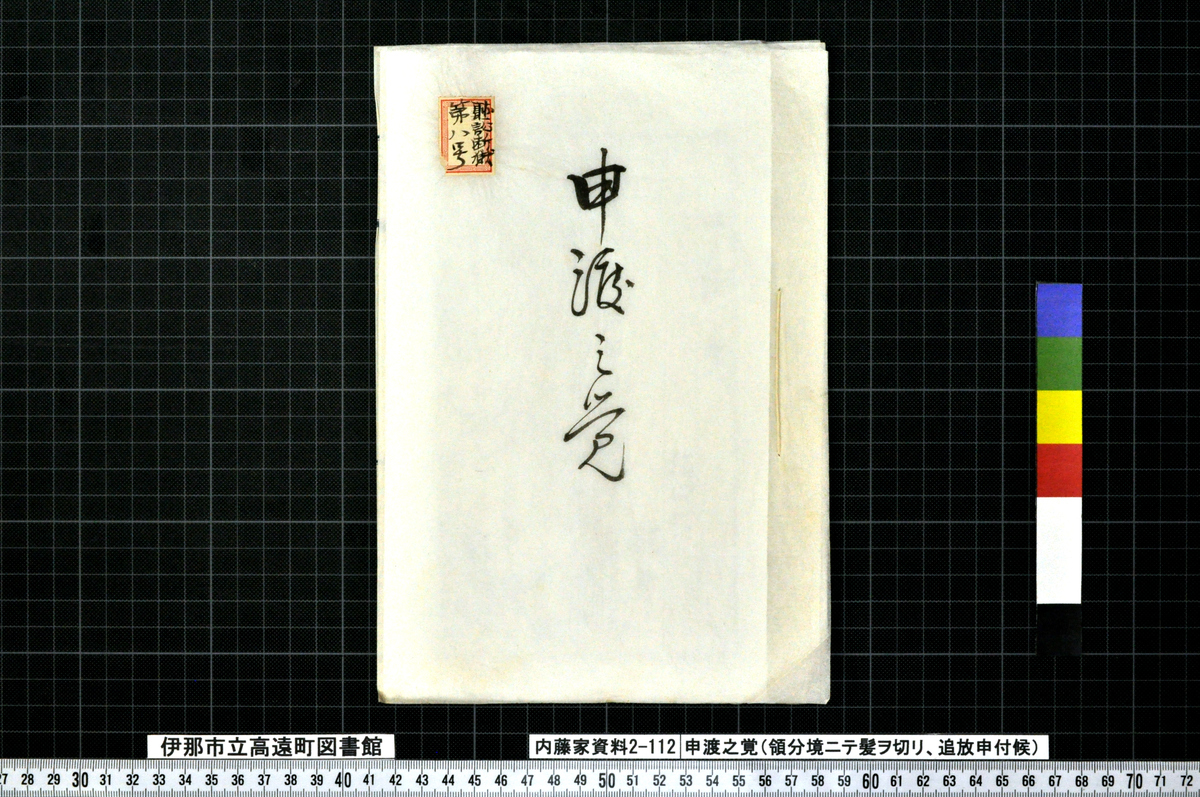 聴訟断獄
第八号
申渡之覚
伊那市立高遠町図書館
内藤家資料2-112 申渡之覚(領分境ニテ髪ヲ切リ、追放申付候)
27 28 29 30 31 32 33 34 35 36 37 38 39 40 41 42 43 44 45 46 47 48 49 50 51 52 53 54 55 56 57 58 59 60 61 62 63 64 65 66 67 68 69 70 71 72